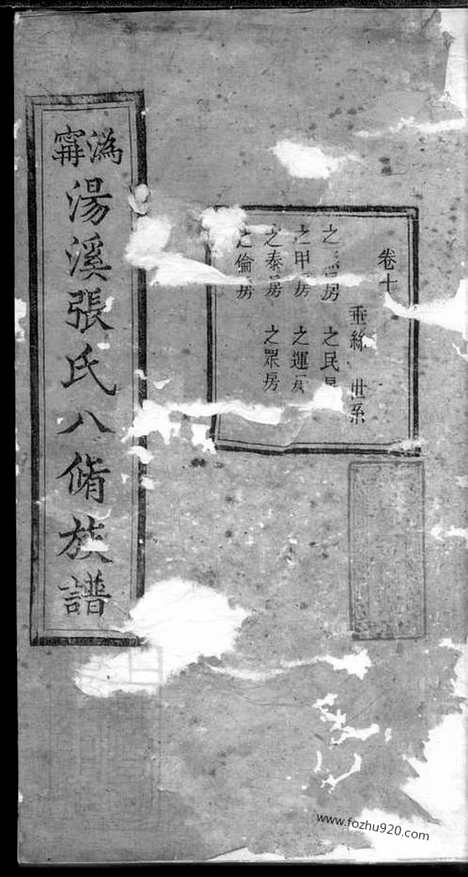 卷十
垂絲 世系
之 房 之民
之甲房 之運房
之泰房 之眾房
之倫房
溈甯
湯溪張氏八脩族譜
www.fozhu920.com